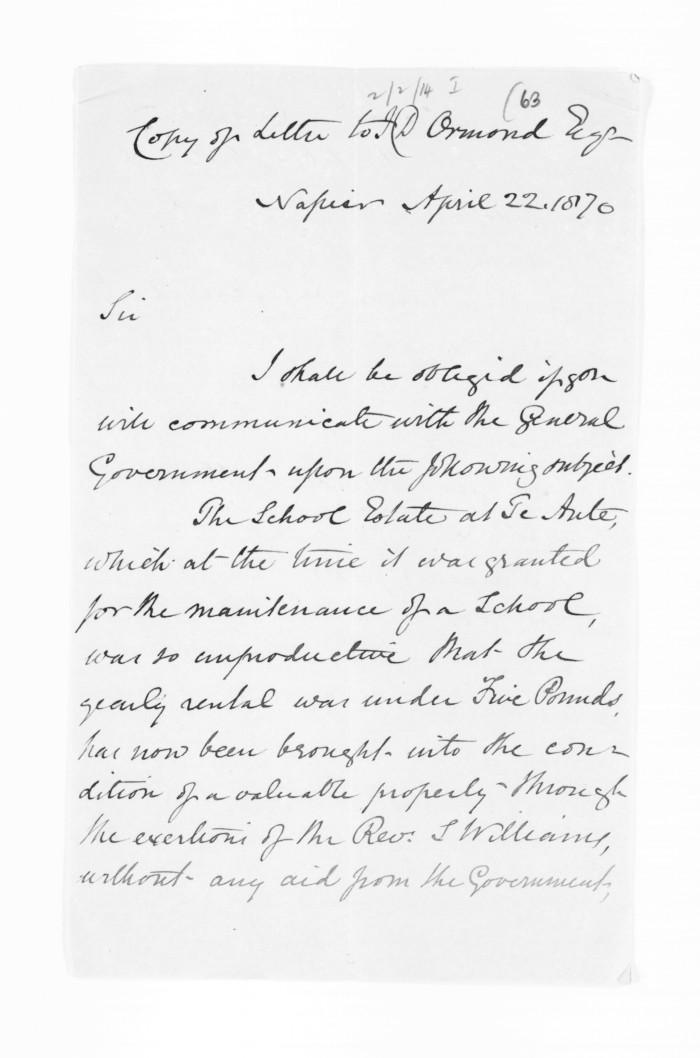 2/2/14 I (63
Copy of Letter to J D Ormond Esqr
Napier April 22. 1870
Sir
I shall be obliged if you
will communicate with the General
Government upon the following subject.
The School Estate at Te Aute,
which at the time it was granted
for the maintenance of a School,
was so unproductive that the
yearly rental was under Five Pounds,
has now been brought into the con-
dition of a valuable property through
the exertions of the Rev: S Williams,
without any aid from the Government,